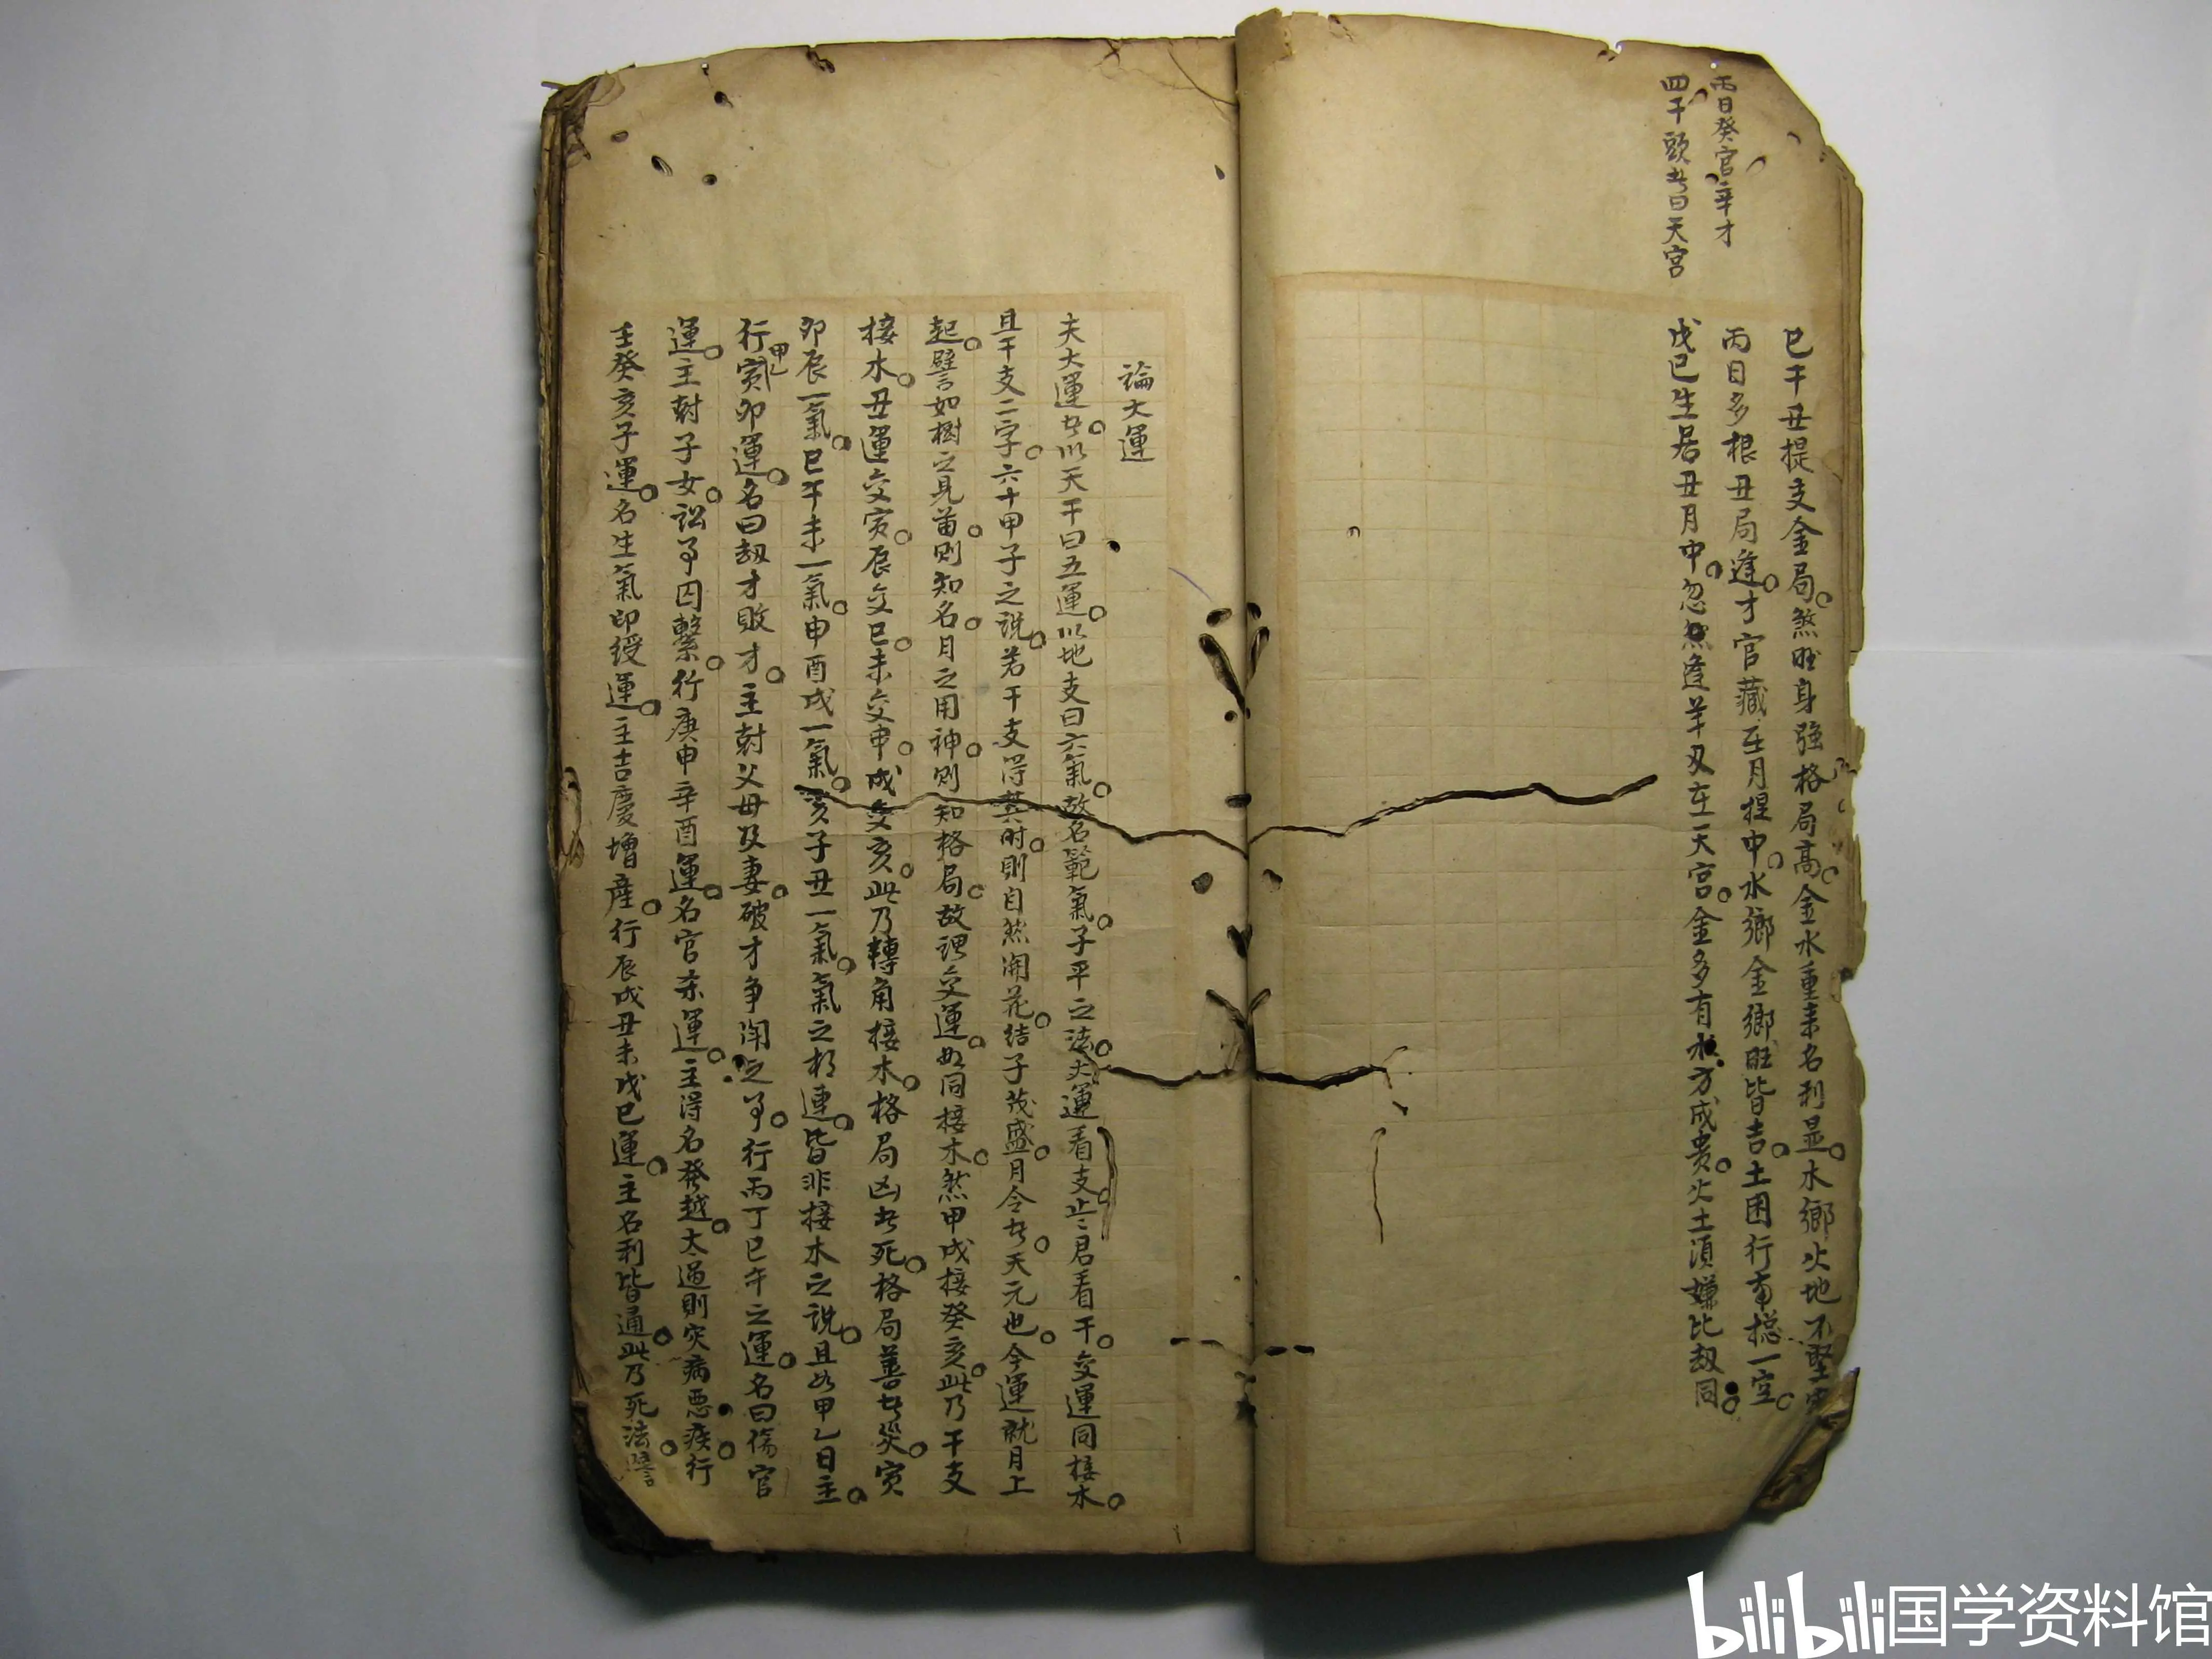 丙日癸官辛才
四干頭者曰天宮
巳干丑提支金局煞旺身强格局高金水重来名利显水鄉火地不堅牢
丙日多根丑局逢才官藏在月提中水鄉金鄉旺皆吉土困行南摠一空
戊巳生居丑月中忽然逢羊刄在天宮金多有水方成贵火土須嫌比刼同
論大運
夫大運者以天干曰五運以地支曰六氣故名範氣子平之法大運看支止君看干交運同接木
且干支二字六十甲子之說若干支得其时則自然開花结子茂盛月令者天元也今運就月上
起譬如樹之見苗则知名月之用神则知格局故谓交運如同接木煞甲戌接癸亥此乃干支
接木丑運交寅辰交巳未交申戌交亥此乃轉角接木格局凶者死格局善者災寅
卯辰一氣巳午未一氣申酉戌一氣亥子丑一氣氣之相連皆非接木之説且如甲乙日主
行甲乙寅卯運名曰刼才敗才主尅父母及妻破才争鬧之事行丙丁巳午之運名曰傷官
運主尅子女訟事囚繫行庚申辛酉運名官杀運主得名發越太過則灾病惡疾行
壬癸亥子運名生氣印綬運主吉慶增產行辰戌丑未戊巳運主名利皆通此乃死法譬
bilibili国学资料馆